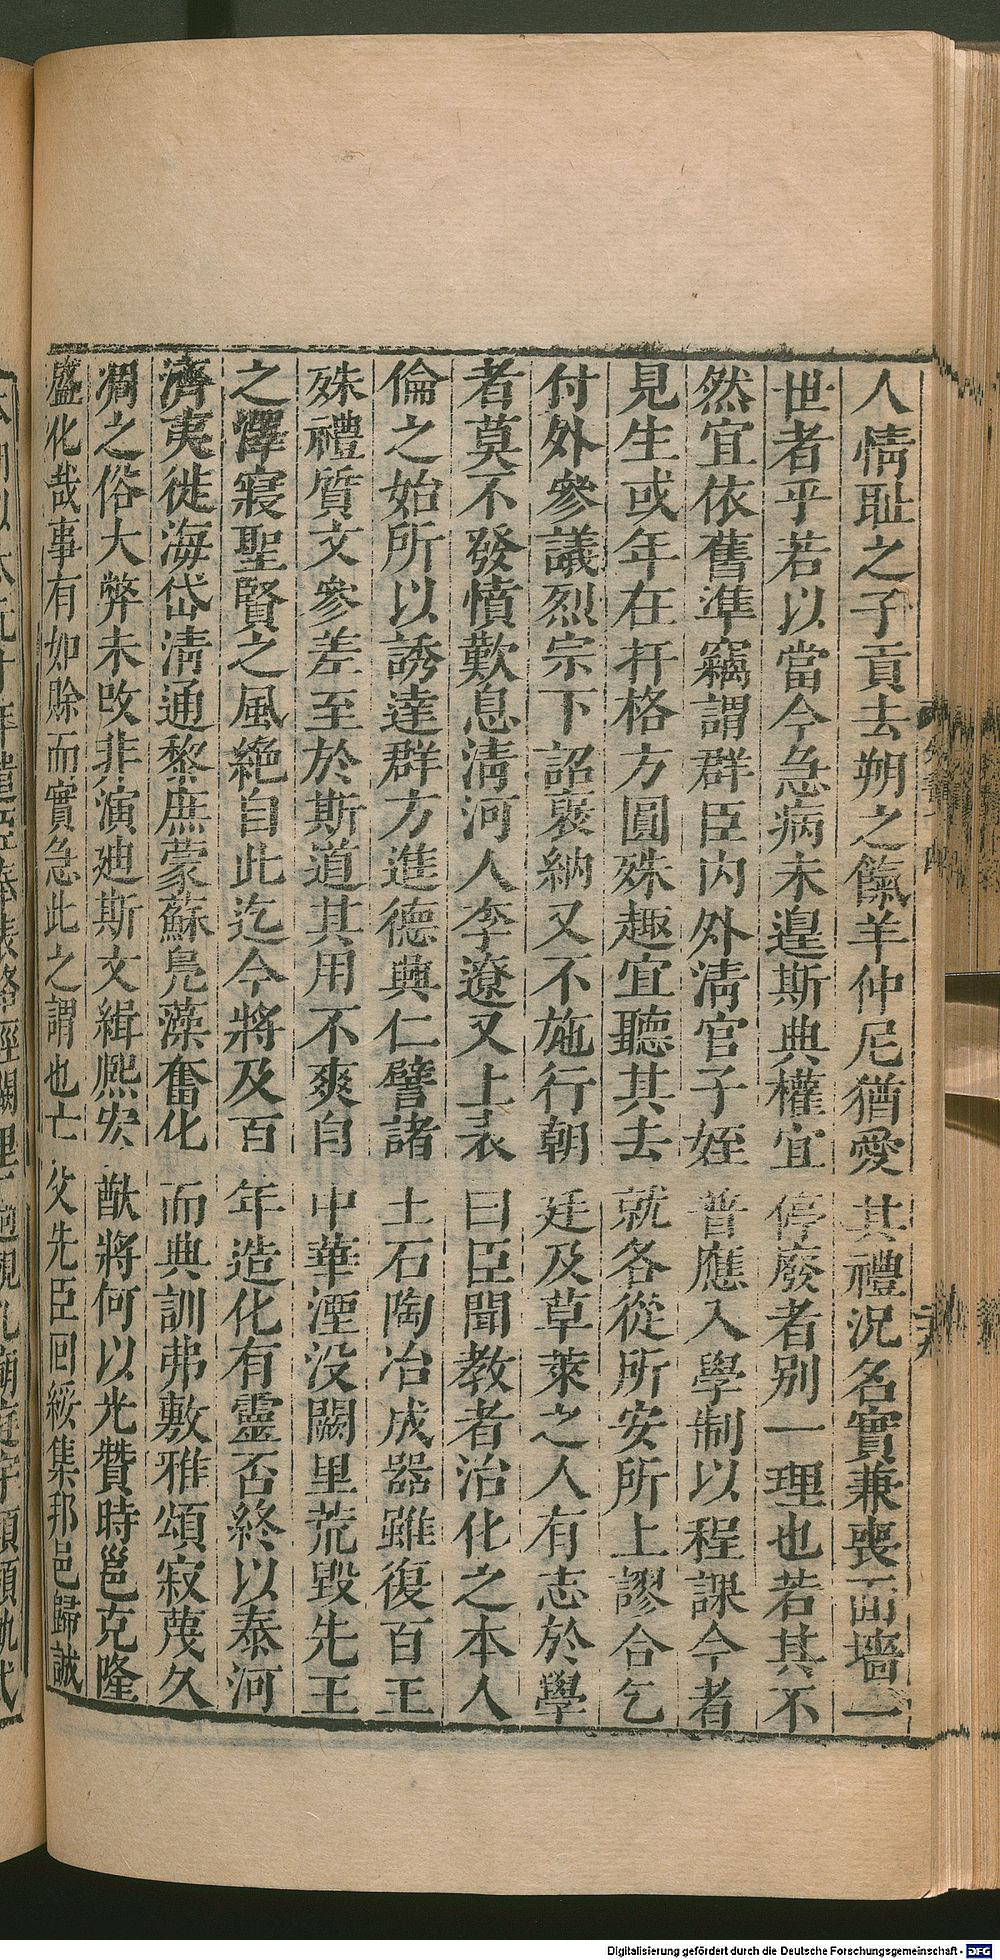 人情耻之子貢去朔之餼羊仲尼猶愛其禮況名實兼喪面墻一
世者乎若以當今急病未遑斯典權宜停廢者别一理也若其不
然宜依舊準竊謂群臣内外清官子姪普應入學制以程課今者
見生或年在扞格方圓殊趣宜聽其去就各從所安所上謬合乞
付外參議烈宗下詔褒納又不施行朝廷及草萊之人有志於學
者莫不發憤歎息清河人李遼又上表曰臣聞教者治化之本人
倫之始所以誘達群方進德興仁譬諸土石陶冶成器雖復百王
殊禮質文參差至於斯道其用不爽自中華湮没闕里荒毀先王
之澤寢聖賢之風絶自此迄今將及百年造化有靈否終以泰河
濟夷徙海岱清通黎庶蒙蘇鳧藻奮化而典訓弗敷雅頌寂蔑久
凋之俗大弊未改非演廸斯文緝熈宏猷將何以光贊時邕克隆
盛化哉事有如賒而實急此之謂也亡父先臣回綏集邦邑歸誠
Digitalisierung gefördert durch die Deutsche Forschungsgemeinschaft - DFG